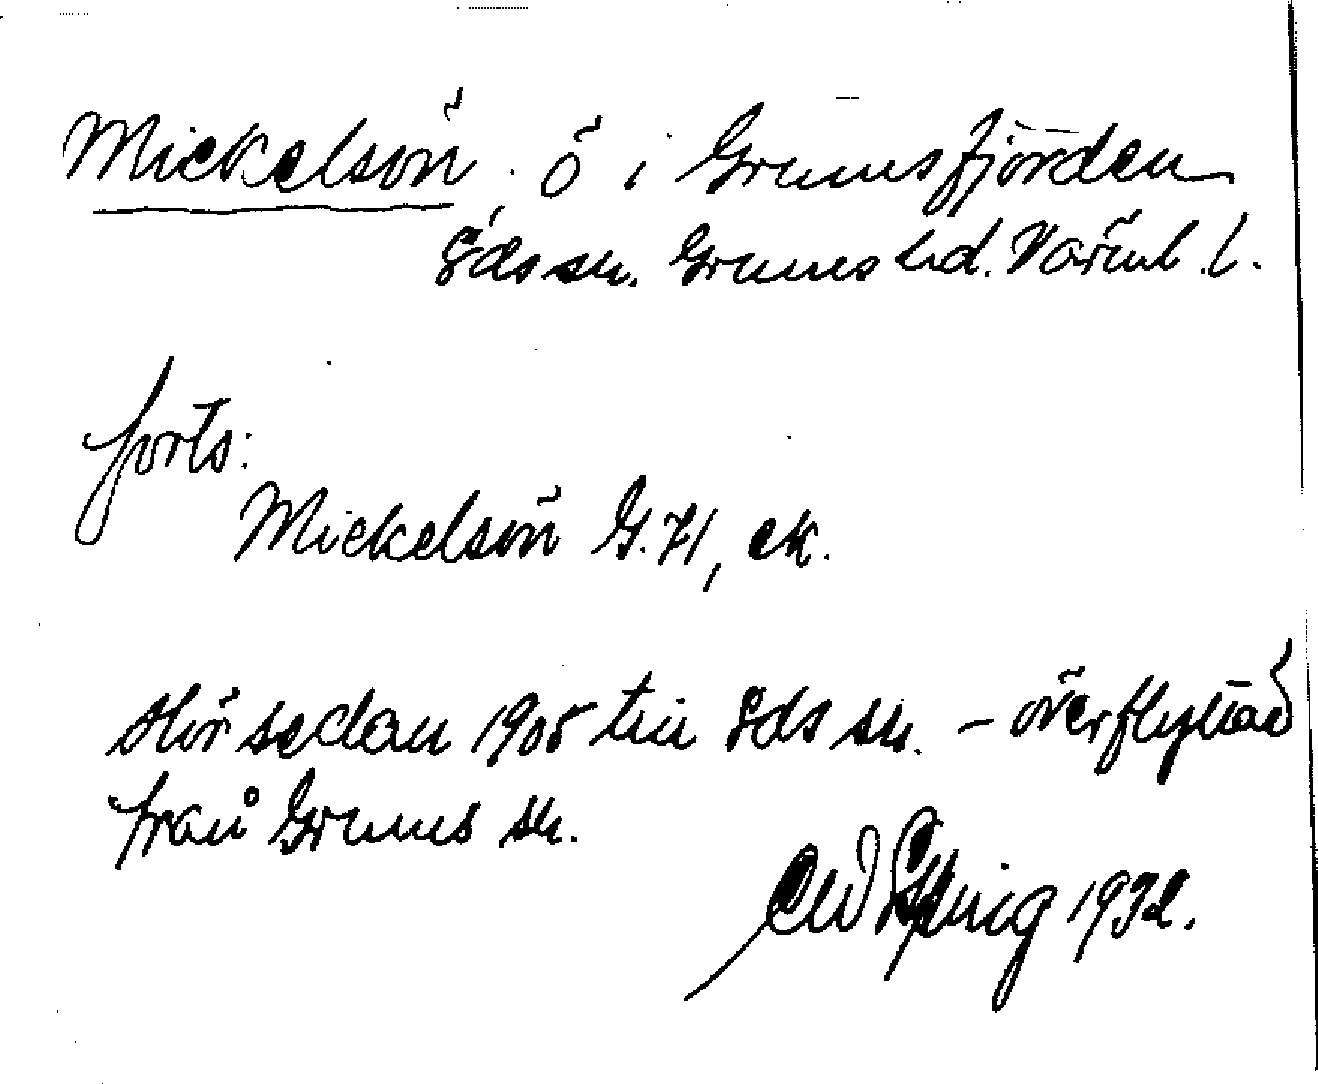 Mickelsön, ö i Grumsfjorden
Eds sn. Grums hd. Värml. l.
forts:
Mickelsön G.71, ek.
Hör sedan 1905 till Eds sn. – överflyttad
från Grums sn.
1932.